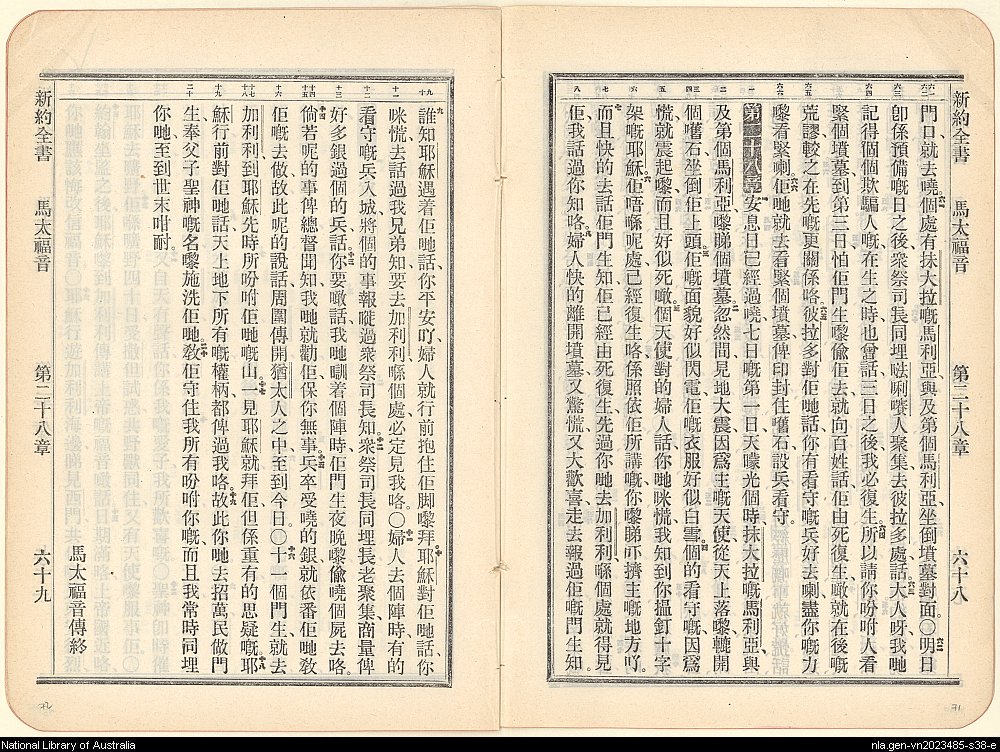 新約全書 馬太福音 第二十八章 六十八
門口就去嘵個處有抹大拉嘅馬利亞與及第個馬利亞坐倒墳墓對面○明日
卽係預備嘅日之後衆祭司長同埋𠵽唎㘔人聚集去彼拉多處話大人呀我哋
記得個個欺騙人嘅在生之時也曾話三日之後我必復生所以請你吩咐人看
緊個墳墓到第三日怕佢門生嚟偸佢去就向百姓話佢由死復生噉就在後嘅
荒謬較之在先嘅更關係咯彼拉多對佢哋話你有看守嘅兵好去喇盡你嘅力
嚟看緊喇佢哋就去看緊個墳墓俾印封住嚿石設兵看守
第二十八章 安息日已經過嘵七日嘅第一日天曚光個時抹大拉嘅馬利亞與
及第個馬利亞嚟睇個墳墓忽然間見地大震因爲主嘅天使從天上落嚟轆開
個嚿石坐倒佢上頭佢嘅面貌好似閃電佢嘅衣服好似白雪個的看守嘅因爲
慌就震起嚟而且好似死噉個天使對的婦人話你哋咪慌我知到你搵釘十字
架嘅耶穌佢唔喺呢處已經復生咯係照依佢所講嘅你嚟睇吓擠主嘅地方吖
而且快的去話佢門生知佢已經由死復生先過你哋去加利利喺個處就得見
佢我話過你知咯婦人快的離開墳墓又驚慌又大歡喜走去報過佢嘅門生知
新約全書 馬太福音 第二十八章 六十九
誰知耶穌遇着佢哋話你平安吖婦人就行前抱住佢脚嚟拜耶穌對佢哋話你
咪慌去話過我兄弟知要去加利利喺個處必定見我咯○婦人去個陣時有的
看守嘅兵入城將個的事報嘥過衆祭司長知衆祭司長同埋長老聚集商量俾
好多銀過個的兵話你要噉話我哋瞓着個陣時佢門生夜晚嚟偸嘵個屍去咯
倘若呢的事俾總督聞知我哋就勸佢保你無事兵卒受嘵的銀就依番佢哋敎
佢嘅去做故此呢的說話周圍傳開猶太人之中至到今日○十一個門生就去
加利利到耶穌先時所吩咐佢哋嘅山一見耶穌就拜佢但係重有的思疑嘅耶
穌行前對佢哋話天上地下所有嘅權柄都俾過我咯故此你哋去招萬民做門
生奉父子聖神嘅名嚟施洗佢哋敎佢守住我所有吩咐你嘅而且我常時同埋
你哋至到世末咁耐
馬太福音傳終
National Library of Australia
nla.gen-vn2023485-s38-e